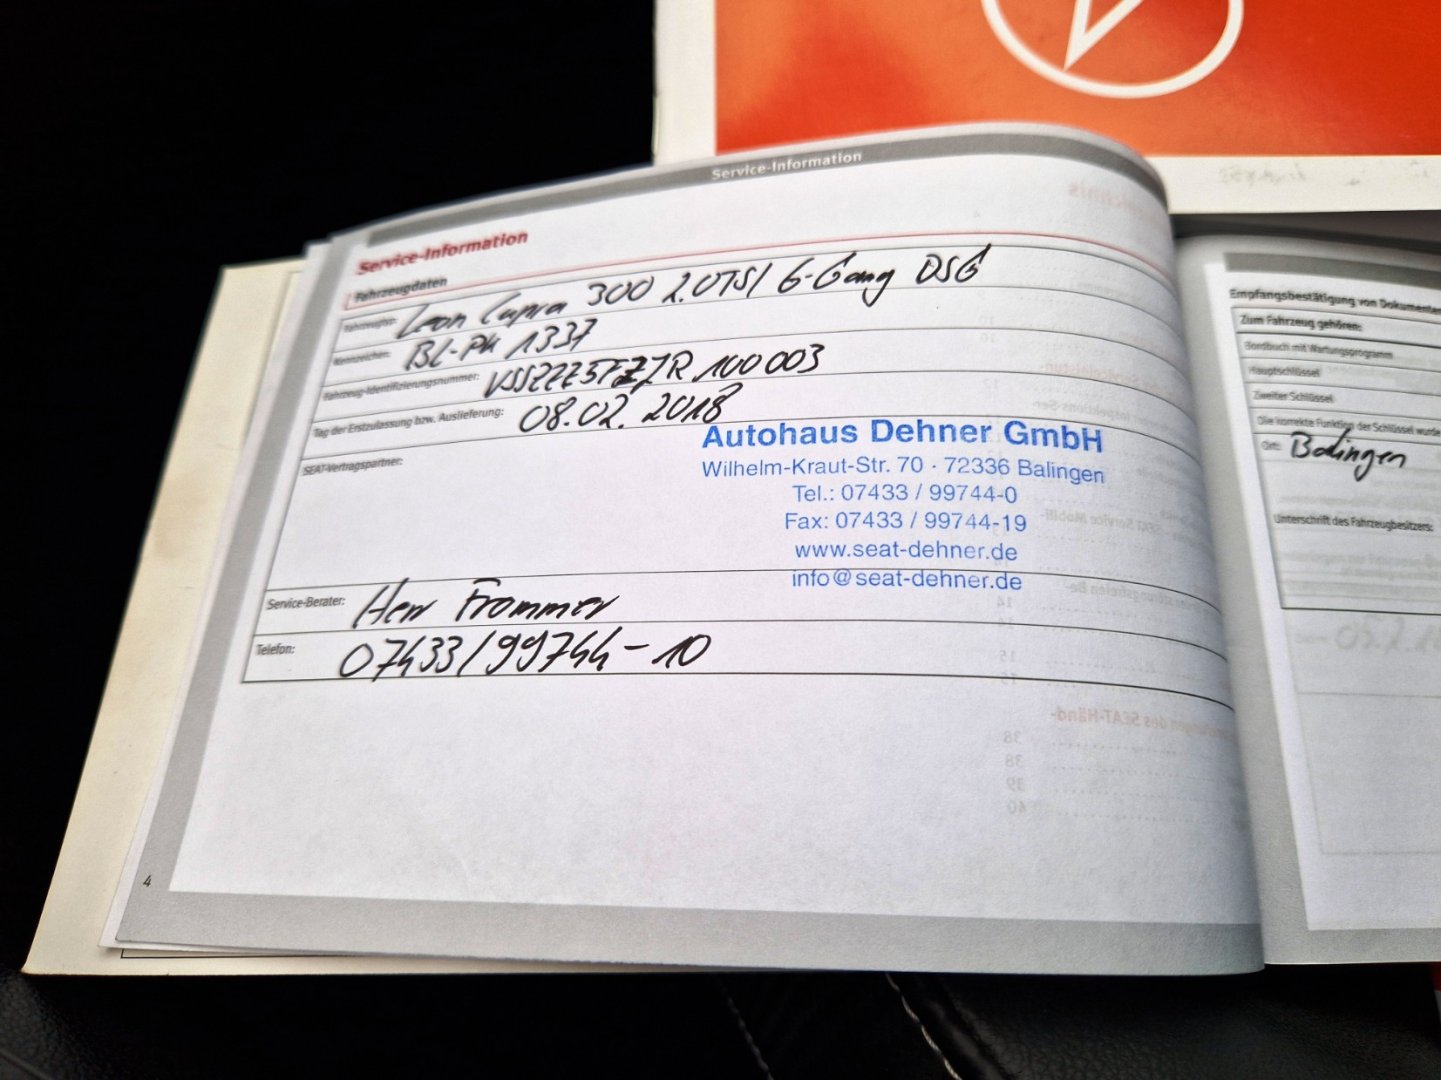 Service-Information
Service-Information
Fahrzeugdaten
Fahrzeugtyp: Leon Cupra 300 2.0TSI 6-Gang DSG
Kennzeichen: BL-PK 1337
Fahrzeug-Identifizierungsnummer: VSSZZZ5FZJR100003
Tag der Erstzulassung bzw. Auslieferung: 08.02.2018
SEAT-Vertragspartner:
Autohaus Dehner GmbH
Wilhelm-Kraut-Str. 70 · 72336 Balingen
Tel.: 07433 / 99744-0
Fax: 07433 / 99744-19
www.seat-dehner.de
info@seat-dehner.de
Service-Berater: Herr Frommer
Telefon: 07433/99744-10
4
Empfangsbestätigung von Dokumenten
Zum Fahrzeug gehören:
Bordbuch mit Wartungsprogramm
Hauptschlüssel
Zweiter Schlüssel
Die korrekte Funktion der Schlüssel wurde
Ort: Balingen
Unterschrift des Fahrzeugbesitzers: